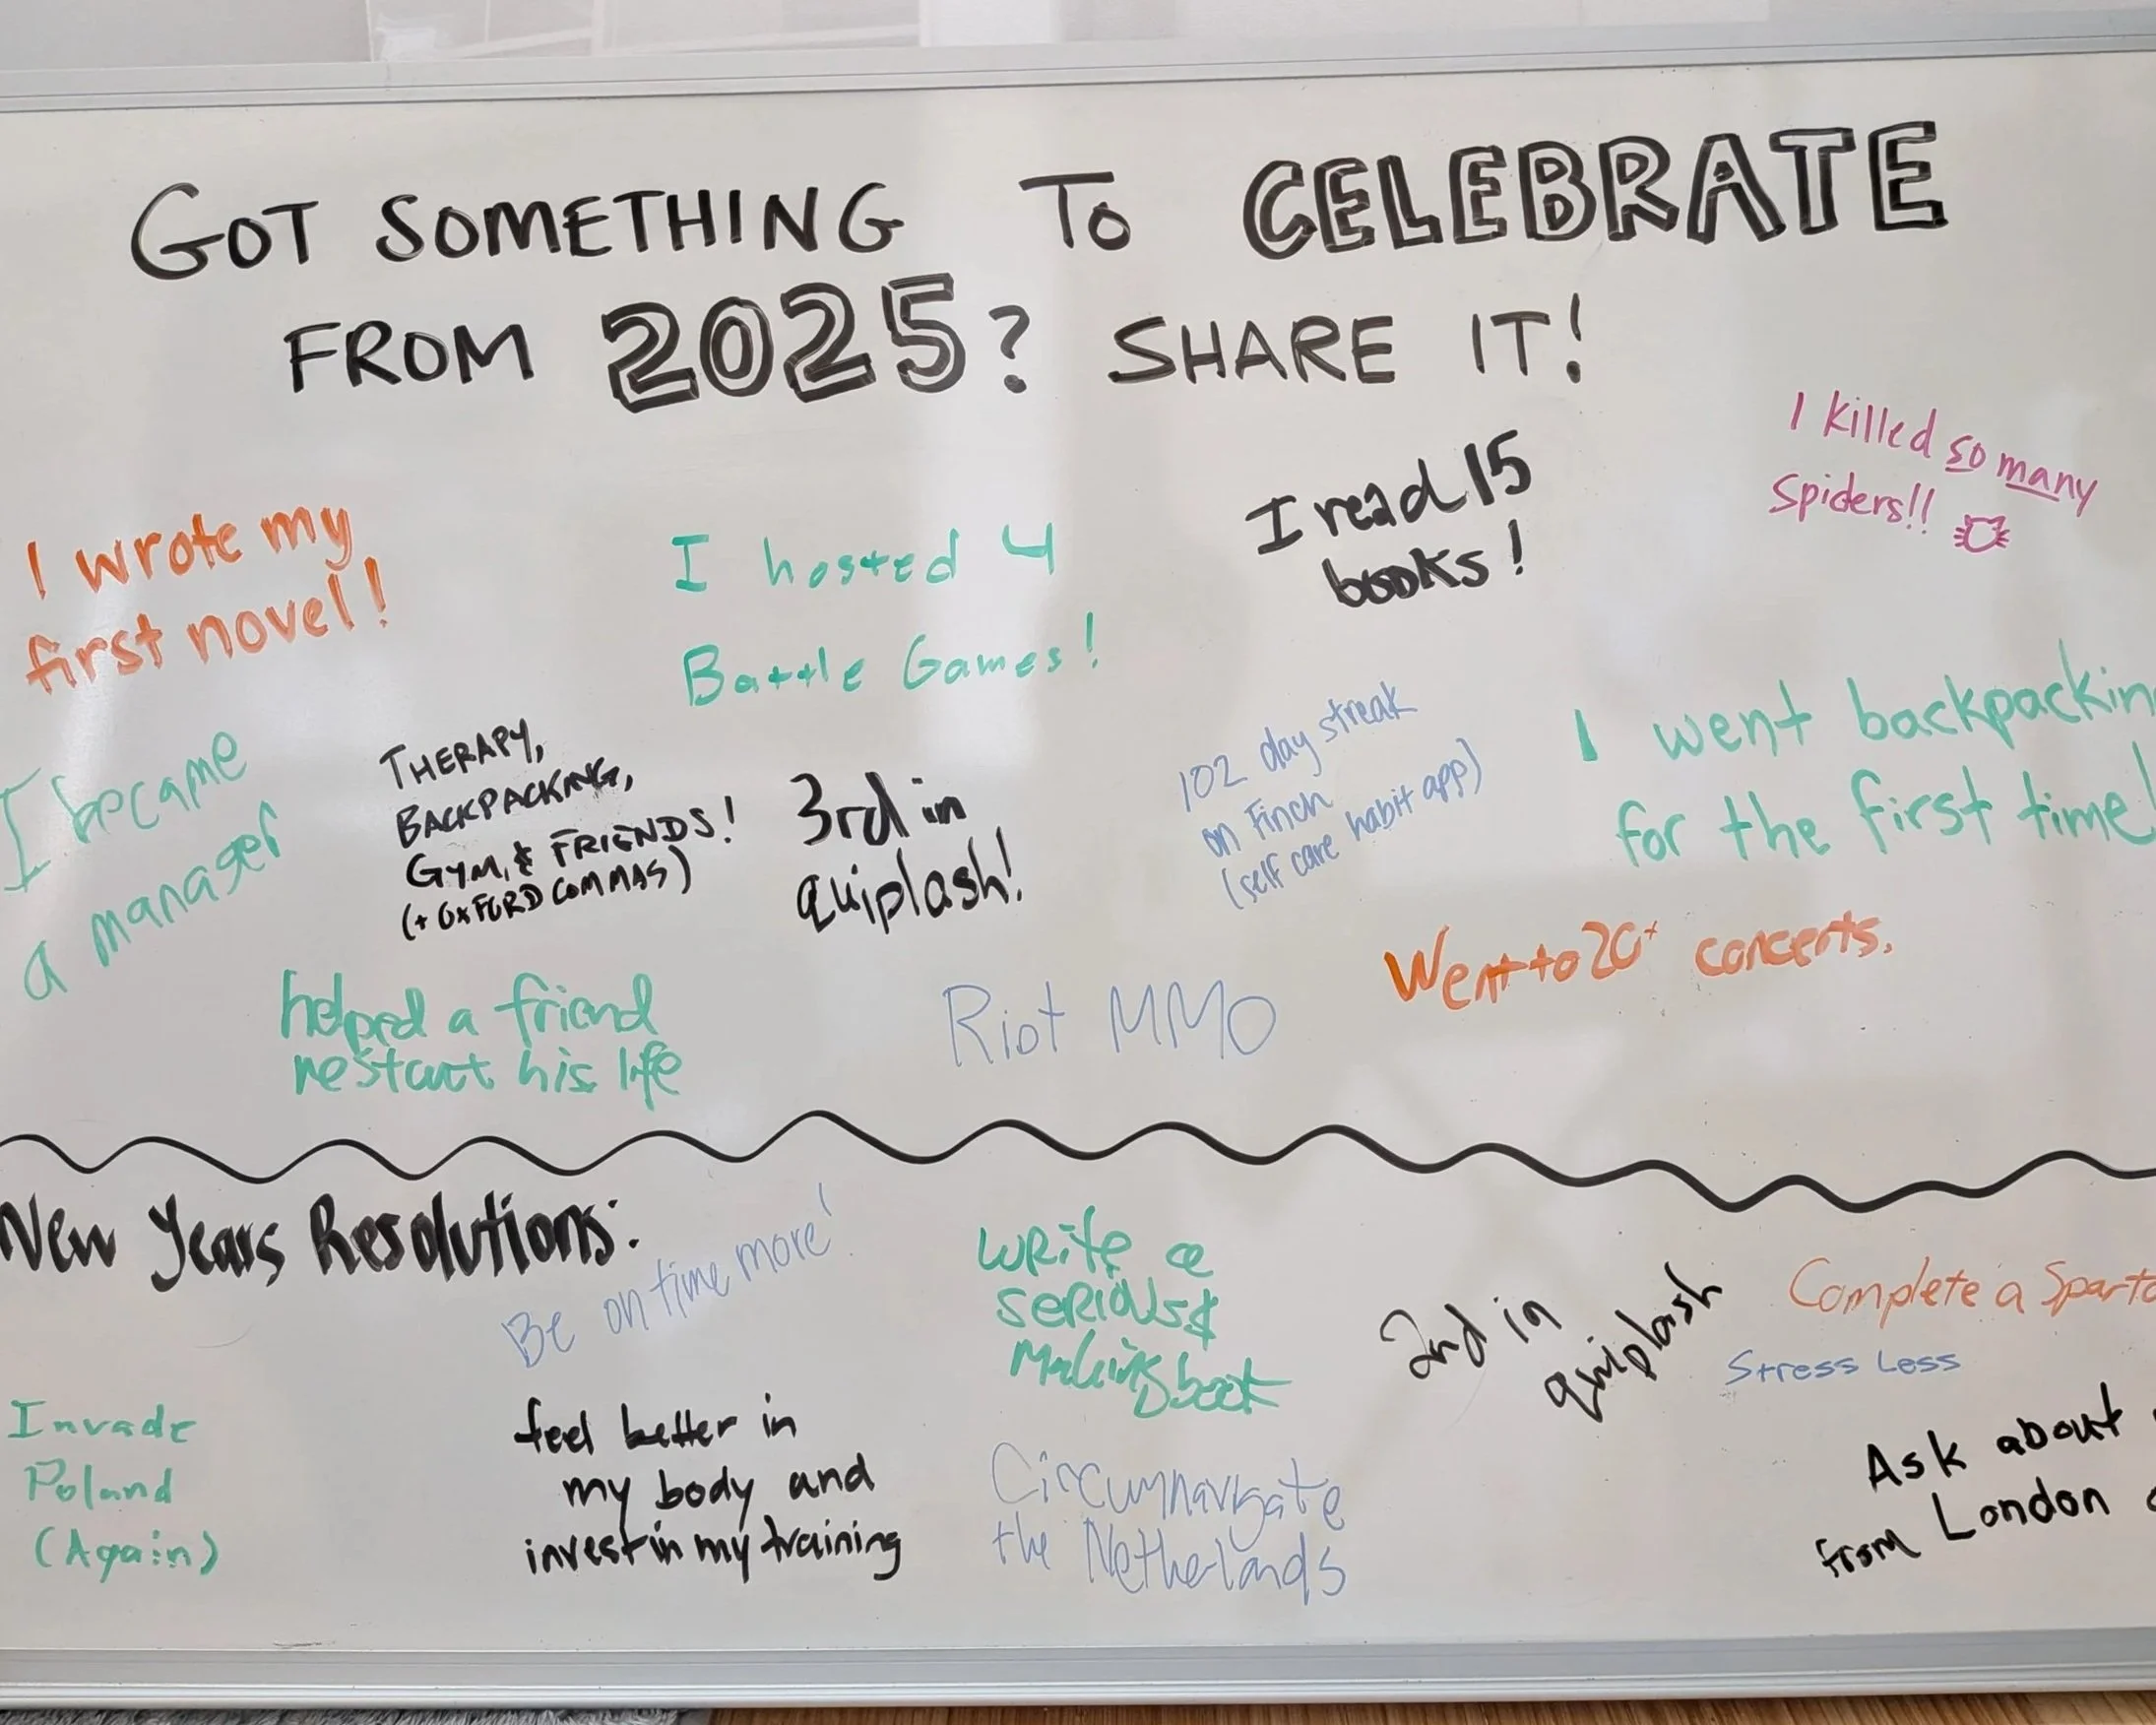 GOT SOMETHING TO CELEBRATE
FROM 2025? SHARE IT!
I killed so many
Spiders!!
I read 15
books!
I wrote my
first novel!
I hosted 4
Battle Games!
I went backpackin
for the first time!
I became
a manager
THERAPY,
BACKPACKING,
GYM, & FRIENDS!
(+ OXFORD COMMAS)
3rd in
quiplash!
102 day streak
on Finch
(self care habit app)
Went to 20+ concerts.
helped a friend
restart his life
Riot MMO
New Years Resolutions:
Be on time more!
Write a
serious $
Making book
2nd in
quiplash
Complete a Sparta
Stress Less
Invade
Poland
(Again)
feel better in
my body and
invest in my training
Circumnavigate
the Netherlands
Ask about
from London